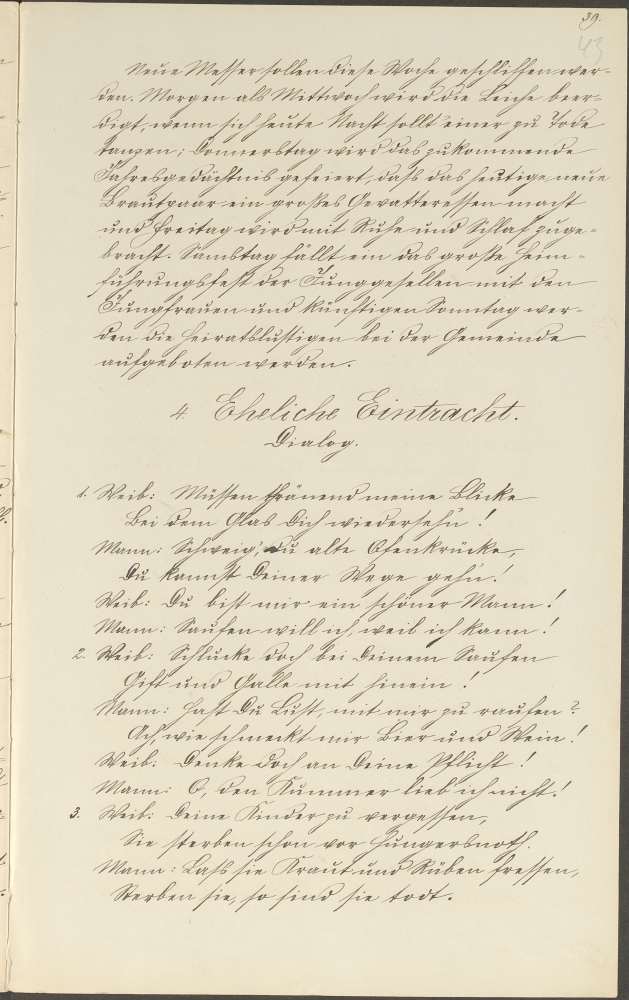 39.
43
Neue Messer sollen diese Woche geschliffen wer-
den. Morgen als Mittwoch wird die Leiche beer-
digt, wenn sich heute Nacht sollt' einer zu Tode
tanzen; Donnerstag wird das zukommende
Jahresgedächtnis gefeiert, daß das heutige neue
Brautpaar ein großes Gevatteressen macht
und Freitag wird mit Ruhe und Schlaf zuge-
bracht. Samstag fällt ein das große Heim-
führungsfest der Junggesellen mit den
Jungfrauen und künftigen Sonntag wer-
den die Heiratslustigen bei der Gemeinde
aufgeboten werden.
4. Eheliche Eintracht.
Dialog.
1. Weib: Müssen thränend meine Blicke
Bei dem Glas Dich wiedersehn!
Mann: Schweig', du alte Ofenkrücke,
Du kannst Deiner Wege gehn!
Weib: Du bist mir ein schöner Mann!
Mann: Saufen will ich, weil ich kann!
2. Weib: Schlucke doch bei Deinem Saufen
Gift und Galle mit hinein!
Mann: Hast Du Lust, mit mir zu raufen?
Ach, wie schmeckt mir Bier und Wein!
Weib: Denke doch an Deine Pflicht!
Mann: O, den Kummer lieb ich nicht!
3. Weib: Deine Kinder zu vergessen,
Sie sterben schon vor Hungersnoth.
Mann: Lass sie Kraut und Rüben fressen,
Sterben sie, so sind sie todt.